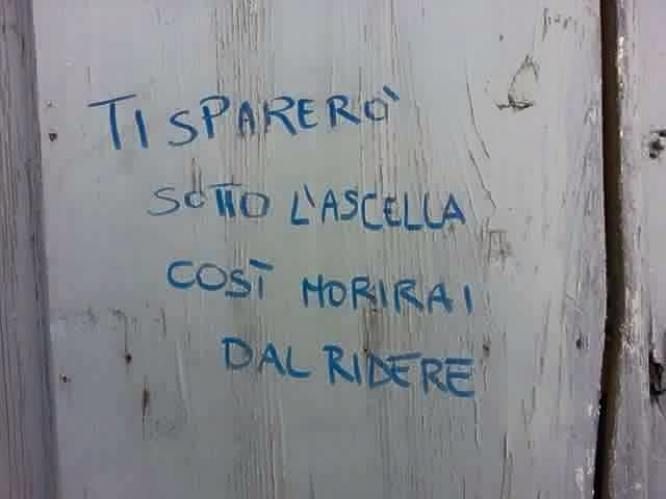 TI SPARERÒ
SOTTO L'ASCELLA
COSÌ MORIRAI
DAL RIDERE